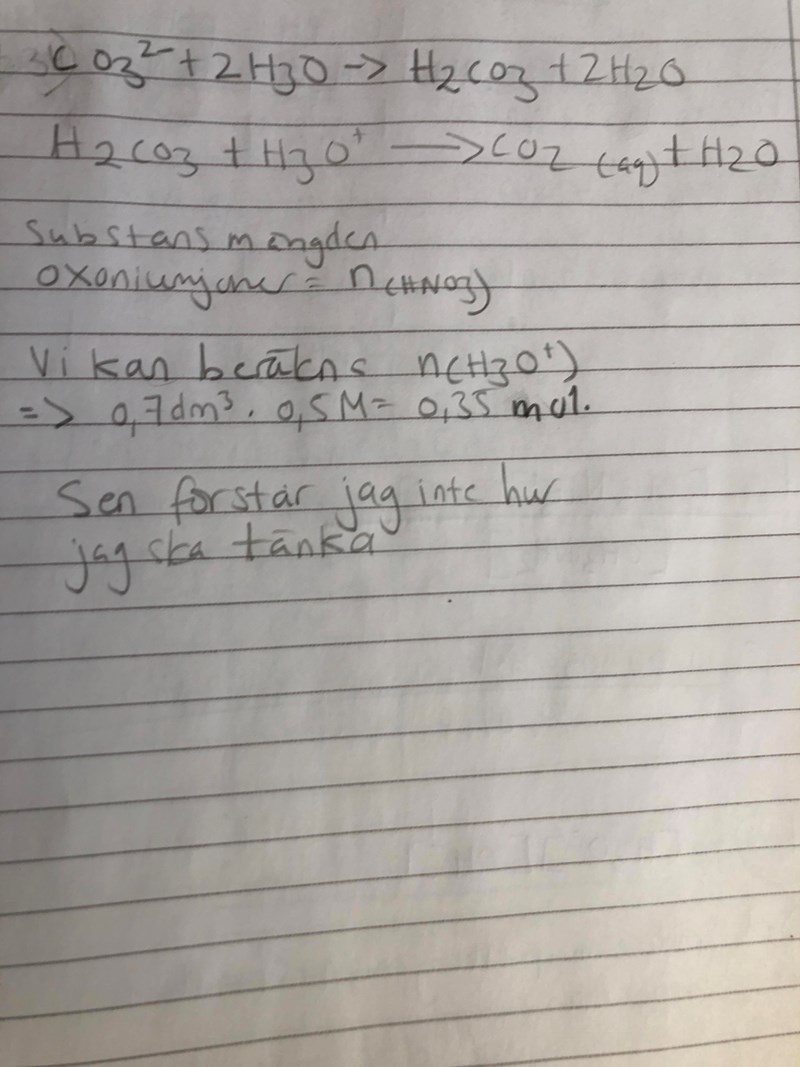 CO3²⁻ + 2H3O -> H2CO3 + 2H2O
H2CO3 + H3O⁺ —> CO2 (aq) + H2O
Substansmängden
oxoniumjoner = n(HNO3)
Vi kan beräkna n(H3O⁺)
=> 0,7dm³ · 0,5M = 0,35 mol.
Sen förstår jag inte hur
jag ska tänka